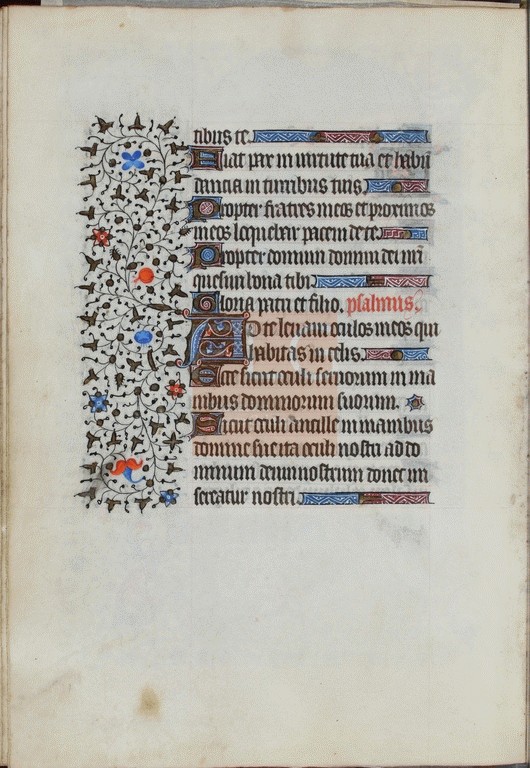 tibus te.
Fiat pax in virtute tua et habū
dancia in turribus tuis.
Propter fratres meos et proximos
meos loquebar pacem de te.
Propter domum domini dei mī
quesivi bona tibi
Gloria patri et filio. psalmus.
Ad te levavi oculos meos qui
habitas in celis.
Ecce sicut oculi servorum in ma
nibus dominorum suorum.
Sicut oculi ancille in manibus
domine sue ita oculi nostri ad do
minum deum nostrum donec mi
sereatur nostri